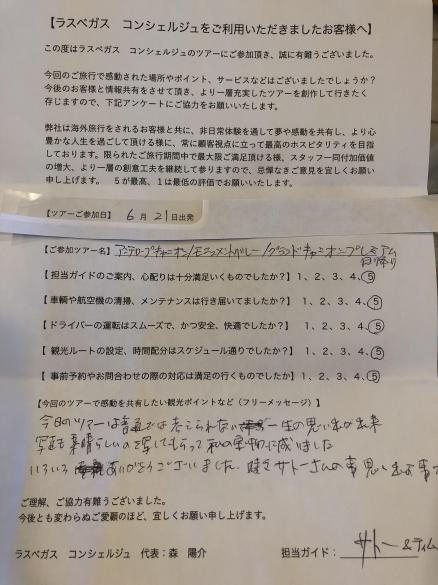 【ラスベガス コンシェルジュをご利用いただきましたお客様へ】
この度はラスベガス コンシェルジュのツアーにご参加頂き、誠に有難うございました。
今回のご旅行で感動された場所やポイント、サービスなどはございましたでしょうか?
今後のお客様と情報共有をさせて頂き、より一層充実したツアーを創作して行きたく
存じますので、下記アンケートにご協力をお願いいたします。
弊社は海外旅行をされるお客様と共に、非日常体験を通して夢や感動を共有し、より心
豊かな人生を過ごして頂ける様に、常に顧客視点に立って最高のホスピタリティを目指
しております。限られたご旅行期間中で最大限ご満足頂ける様、スタッフ一同付加価値
の増大、より一層の創意工夫を継続して参りますので、忌憚なきご意見を宜しくお願い
申し上げます。 5が最高、1は最低の評価でお願いします。
【ツアーご参加日】 6月 21日出発
【ご参加ツアー名】アンテロープキャニオン/モニュメントバレー/グランドキャニオンプレミアム
日帰り
【担当ガイドのご案内、心配りは十分満足いくものでしたか?】 1、2、3、4、5
【車輌や航空機の清掃、メンテナンスは行き届いてましたか?】 1、2、3、4、5
【ドライバーの運転はスムーズで、かつ安全、快適でしたか?】 1、2、3、4、5
【 観光ルートの設定、時間配分はスケジュール通りでしたか?】 1、2、3、4、5
【 事前予約やお問合わせの際の対応は満足の行くものでしたか】 1、2、3、4、5
【今回のツアーで感動を共有したい観光ポイントなど(フリーメッセージ)】
今日のツアーは普通では考えられない 一生の思い出が出来
写真も素晴らしいのを写してもらって私の宝物に成りました
いろいろ ありがとうございました。 サトーさんの事思い出す事
ご理解、ご協力有難うございました。
今後とも変わらぬご愛顧のほど、宜しくお願い申し上げます。
ラスベガス コンシェルジュ 代表:森 陽介
担当ガイド: サトー & ティム